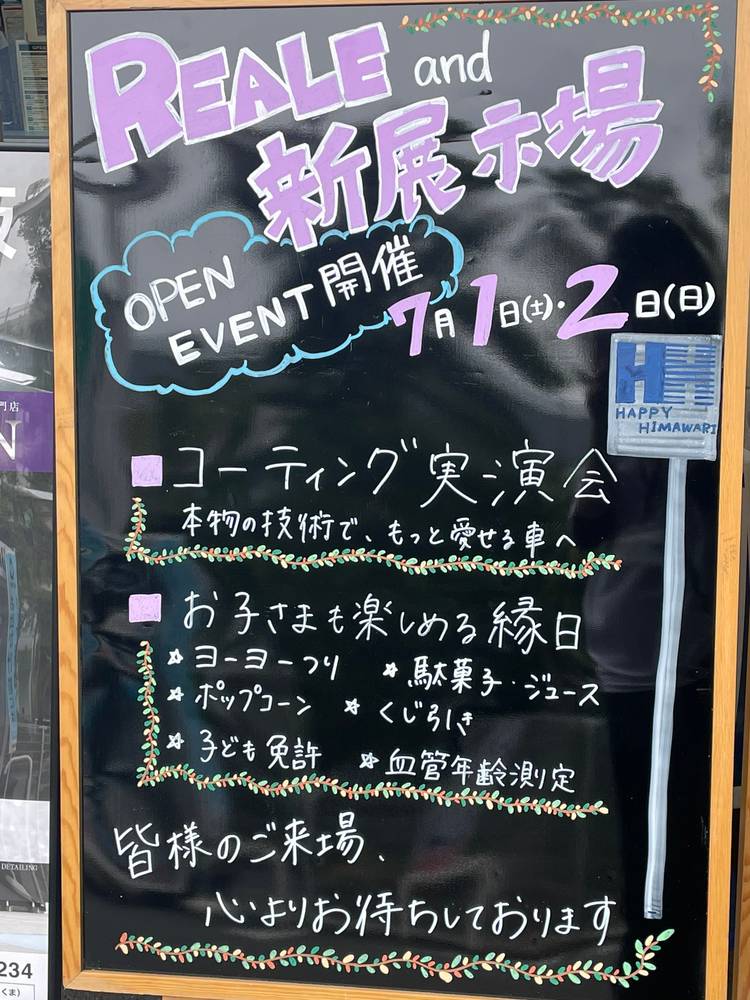 REALE and
新展示場
OPEN
EVENT開催
7月1日(土)・2日(日)
HAPPY
HIMAWARI
■コーティング実演会
本物の技術で、もっと愛せる車へ
■お子さまも楽しめる縁日
☆ヨーヨーつり ☆駄菓子・ジュース
☆ポップコーン ☆くじ引き
☆子ども免許 ☆血管年齢測定
皆様のご来場、
心よりお待ちしております
門店
N
DETAILING
234
くま)